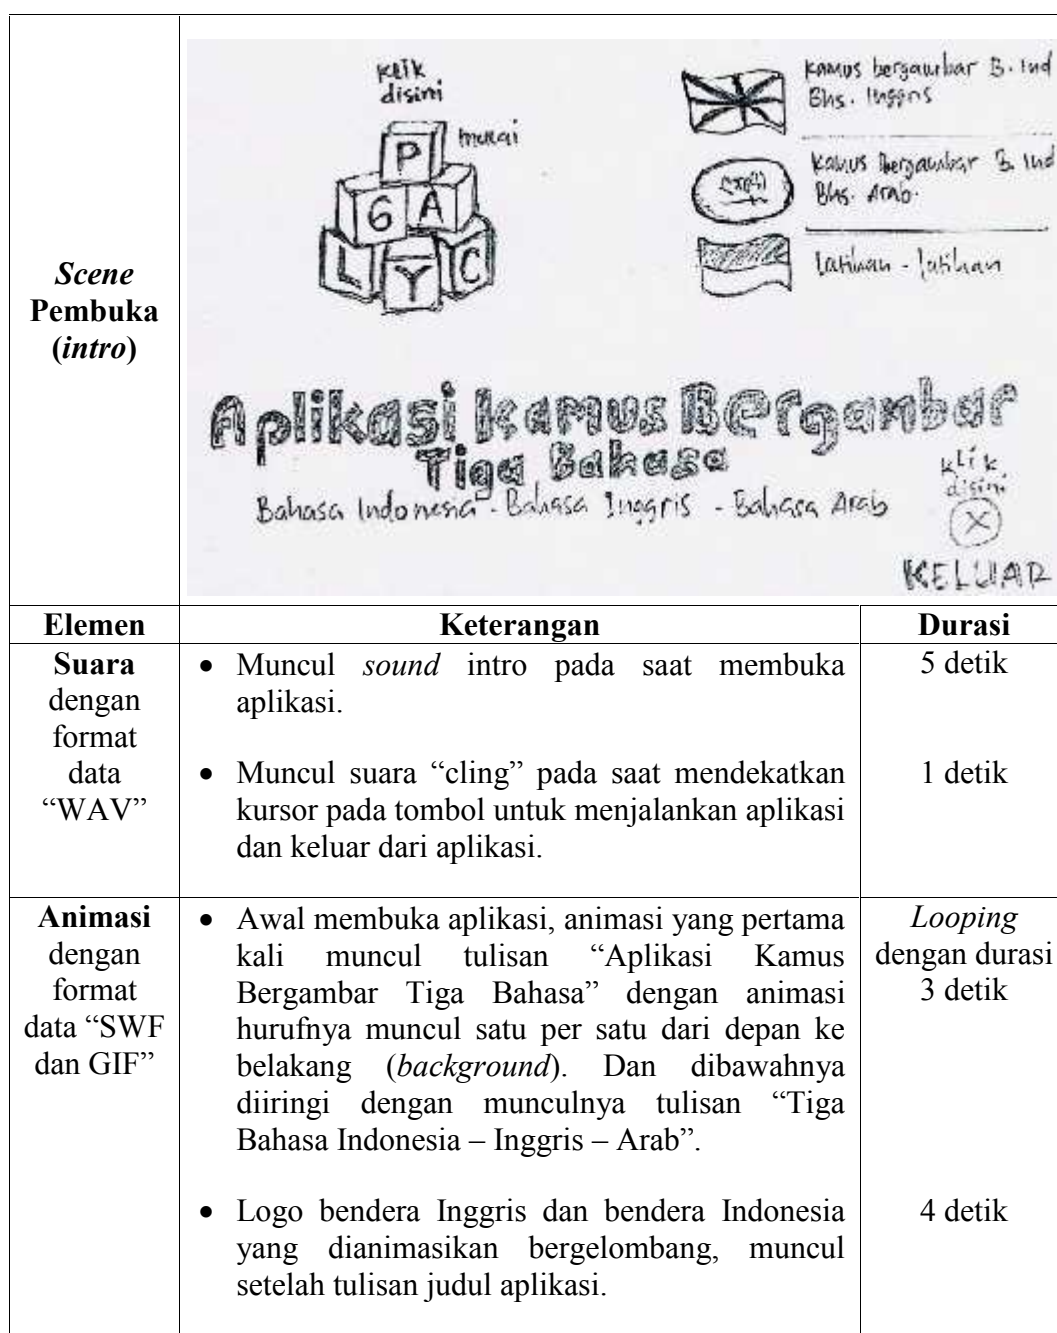 Scene
Pembuka
(intro)
KLIK
disini
mulai
P
G A
L Y C
Kamus bergambar B. Ind
Bhs. Inggris
Kamus Bergambar B. Ind
Bhs. Arab.
Latihan - latihan
Aplikasi Kamus Bergambar
Tiga Bahasa
Bahasa Indonesia - Bahasa Inggris - Bahasa Arab
klik
disini
X
KELUAR
Elemen Keterangan Durasi
Suara
dengan
format
data
“WAV”
• Muncul sound intro pada saat membuka
aplikasi.
5 detik
• Muncul suara “cling” pada saat mendekatkan
kursor pada tombol untuk menjalankan aplikasi
dan keluar dari aplikasi.
1 detik
Animasi
dengan
format
data “SWF
dan GIF”
• Awal membuka aplikasi, animasi yang pertama
kali muncul tulisan “Aplikasi Kamus
Bergambar Tiga Bahasa” dengan animasi
hurufnya muncul satu per satu dari depan ke
belakang (background). Dan dibawahnya
diiringi dengan munculnya tulisan “Tiga
Bahasa Indonesia – Inggris – Arab”.
Looping
dengan durasi
3 detik
• Logo bendera Inggris dan bendera Indonesia
yang dianimasikan bergelombang, muncul
setelah tulisan judul aplikasi.
4 detik